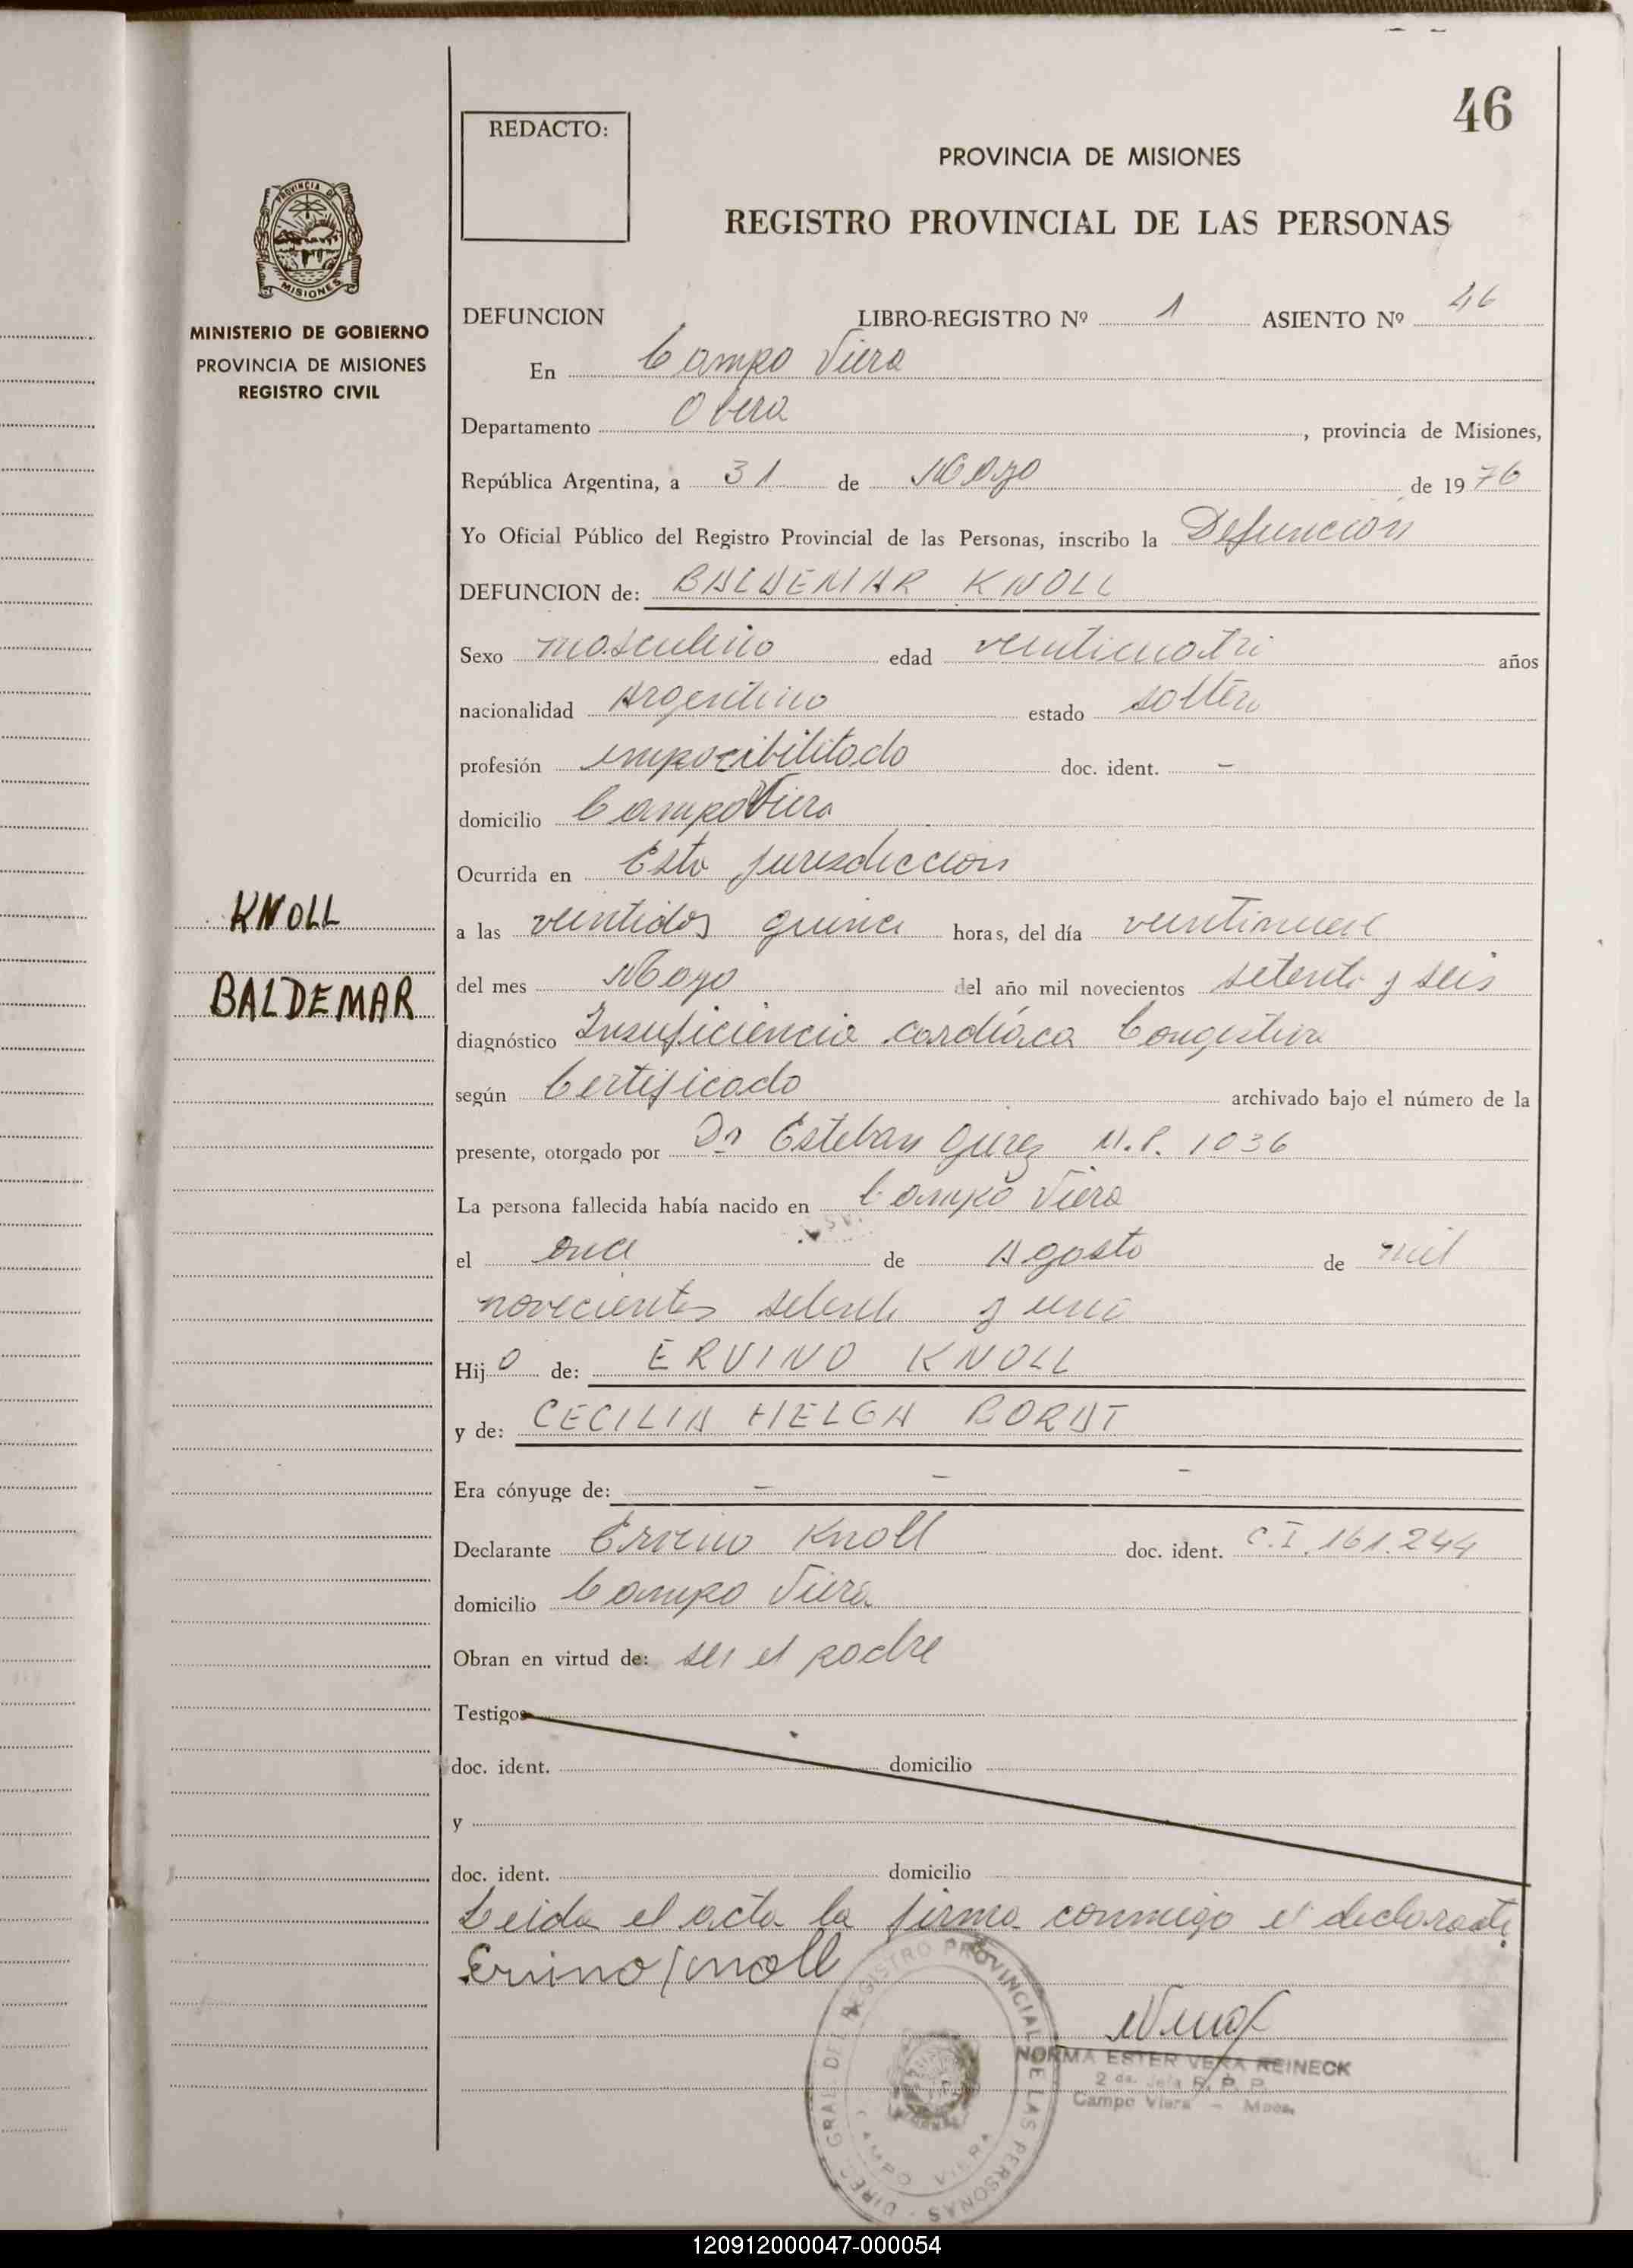 46
REDACTO:
PROVINCIA DE MISIONES
REGISTRO PROVINCIAL DE LAS PERSONAS
PROVINCIA DE
MISIONES
MINISTERIO DE GOBIERNO
PROVINCIA DE MISIONES
REGISTRO CIVIL
DEFUNCION LIBRO-REGISTRO Nº 1 ASIENTO Nº 46
En Campo Viera
Departamento Obera, provincia de Misiones,
República Argentina, a 31 de Mayo de 1976
Yo Oficial Público del Registro Provincial de las Personas, inscribo la Defuncion
DEFUNCION de: BALDEMAR KNOLL
Sexo masculino edad veinticuatro años
nacionalidad Argentino estado soltero
profesión impocibilitado doc. ident. -
domicilio Campo Viera
Ocurrida en Esta jurisdiccion
KNOLL
a las veintidos quince horas, del día veintinueve
BALDEMAR
del mes Mayo del año mil novecientos setenta y seis
diagnóstico Insuficiencia cardíaca Congestiva
según Certificado archivado bajo el número de la
presente, otorgado por Dr Esteban M.P. 1036
La persona fallecida había nacido en Campo Viera
el once de Agosto de mil
novecientos setenta y uno
Hijo de: ERVINO KNOLL
y de: CECILIA HELGA BORAT
Era cónyuge de: - - -
Declarante Ervino Knoll doc. ident. C.I. 161.244
domicilio Campo Viera
Obran en virtud de: ser el padre
Testigos
doc. ident. domicilio
y
doc. ident. domicilio
Leida el acta la firma conmigo el declarante.
Ervino Knoll
DIREC. GRAL. DEL REGISTRO PROVINCIAL DE LAS PERSONAS
CAMPO VIERA
NORMA ESTER VERA REINECK
2 da. Jefa R. P. P.
Campo Viera - Mnes.
120912000047-000054